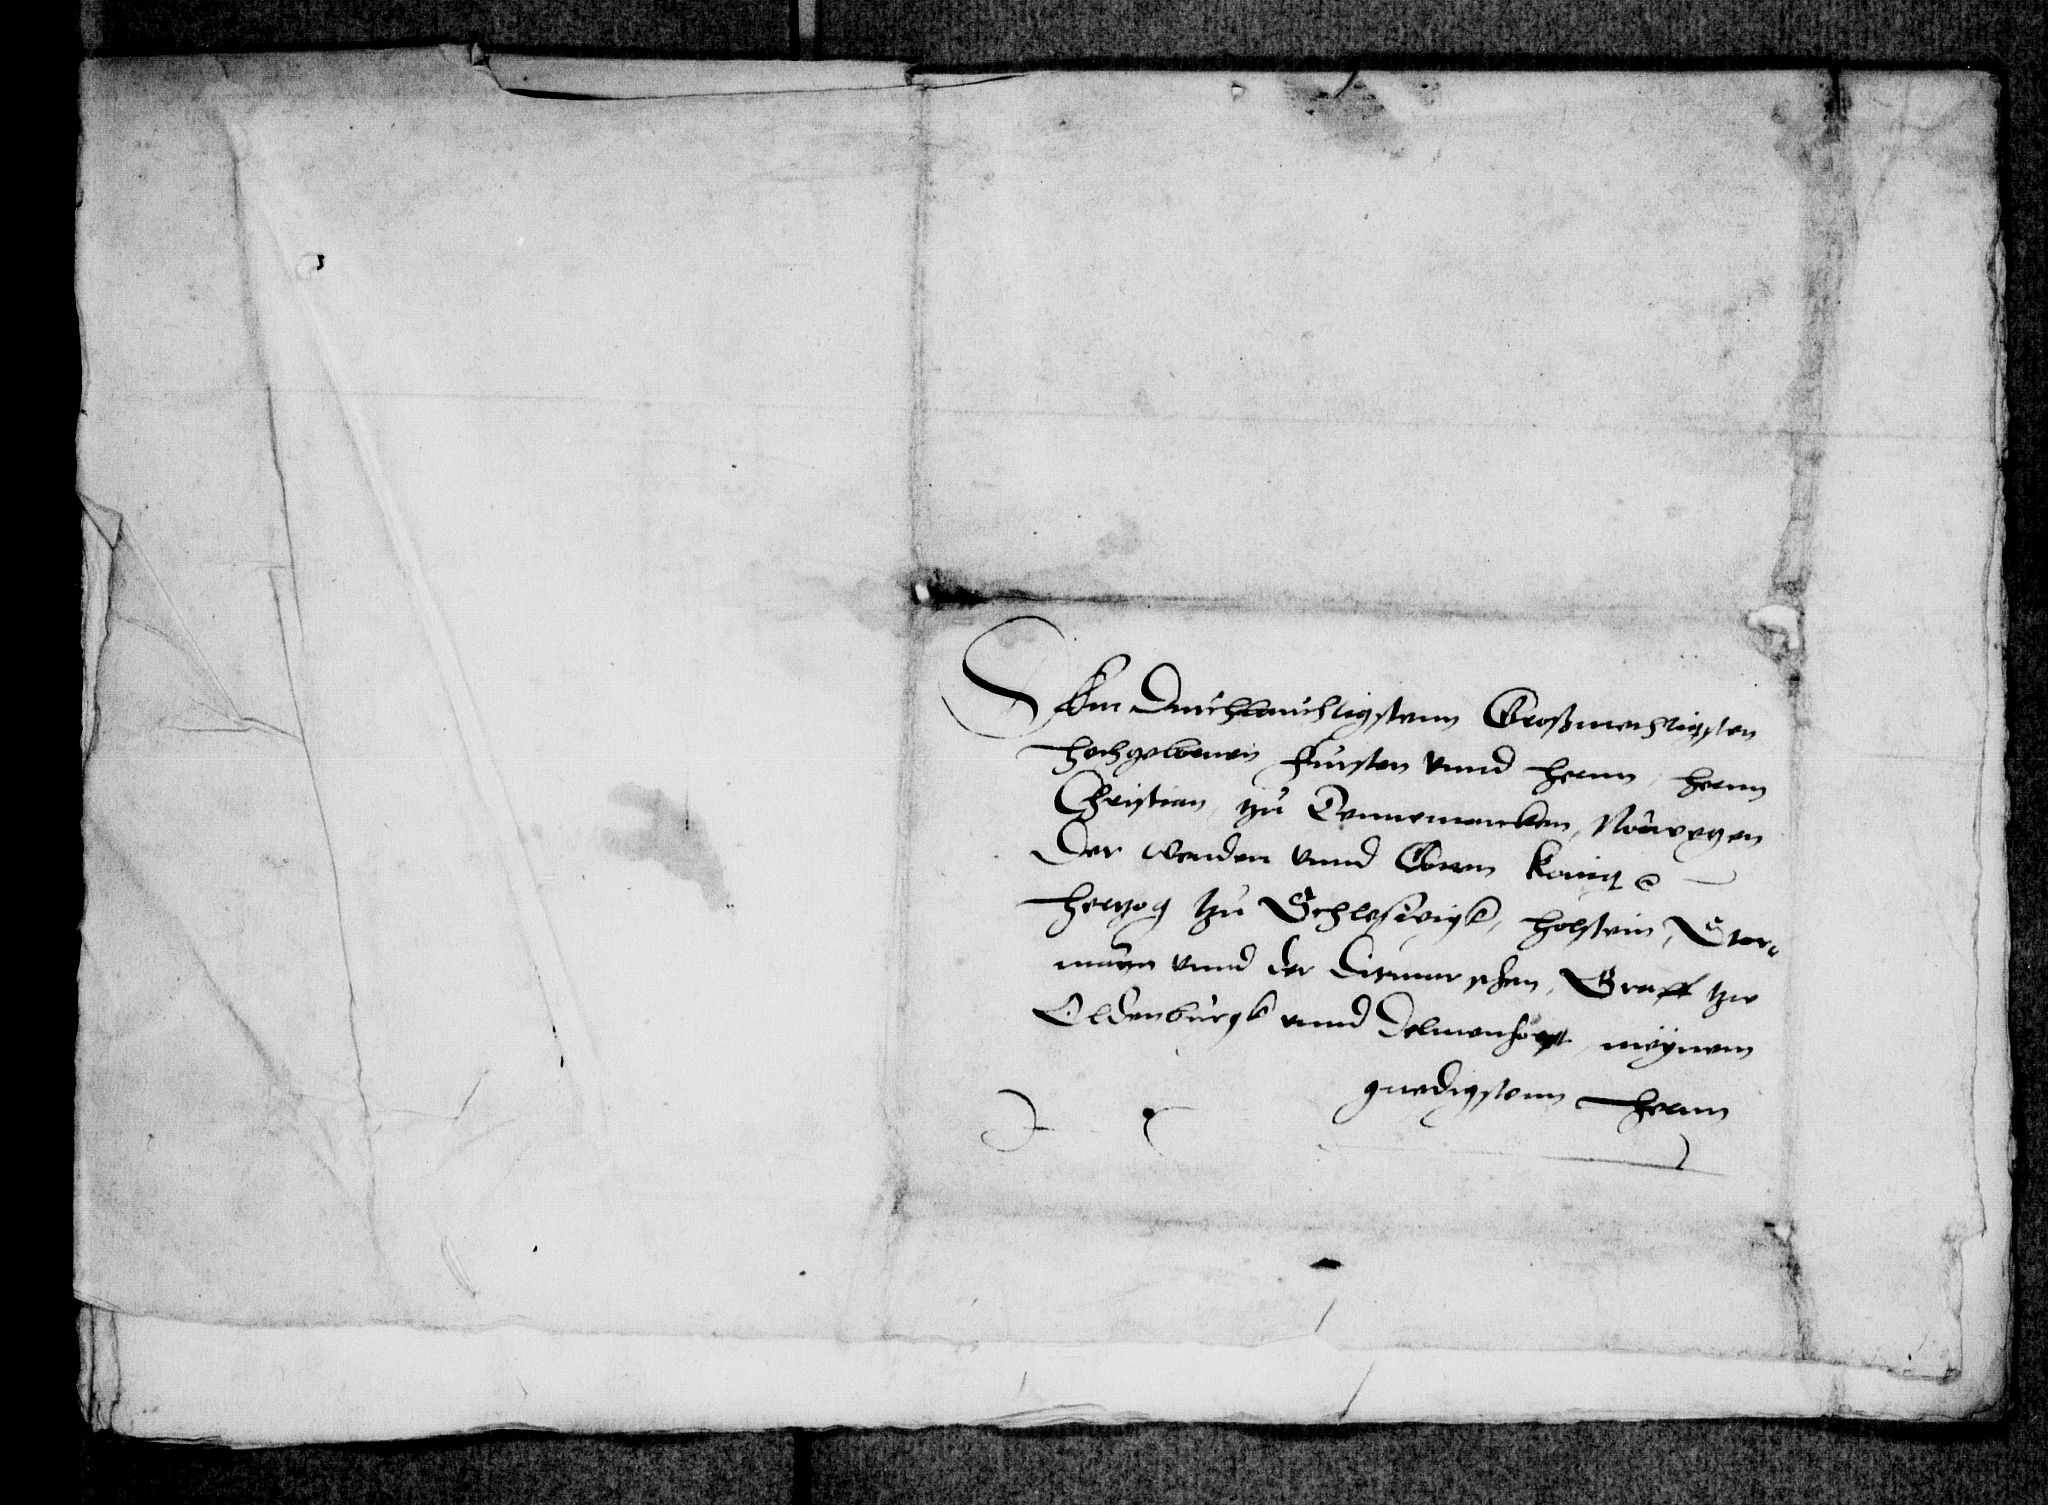 Dem Durchleuchtigstenn Großmechtigsten
hochgebornen fursten vnnd hernn, hernn
Christian, tzu Dennemarcken, Norwegen
Der Wenden vnnd Gotten konig
hertzog tzu Schleßwigk, holstein, Stor-
marn vnnd der Ditmarschen, Graff tzw
Oldenburgk vnnd Delmenhorst, meynem
gnedigstenn hernn